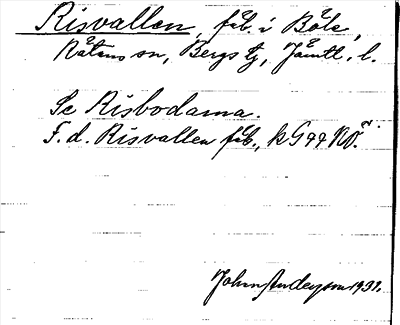 Risvallen, fäb. i Böle,
Rätans sn, Bergs tg, Jämtl. l.
Se Risbodarna.
F.d. Risvallen fäb., k G 44 NÖ.
John Anderson 1931.